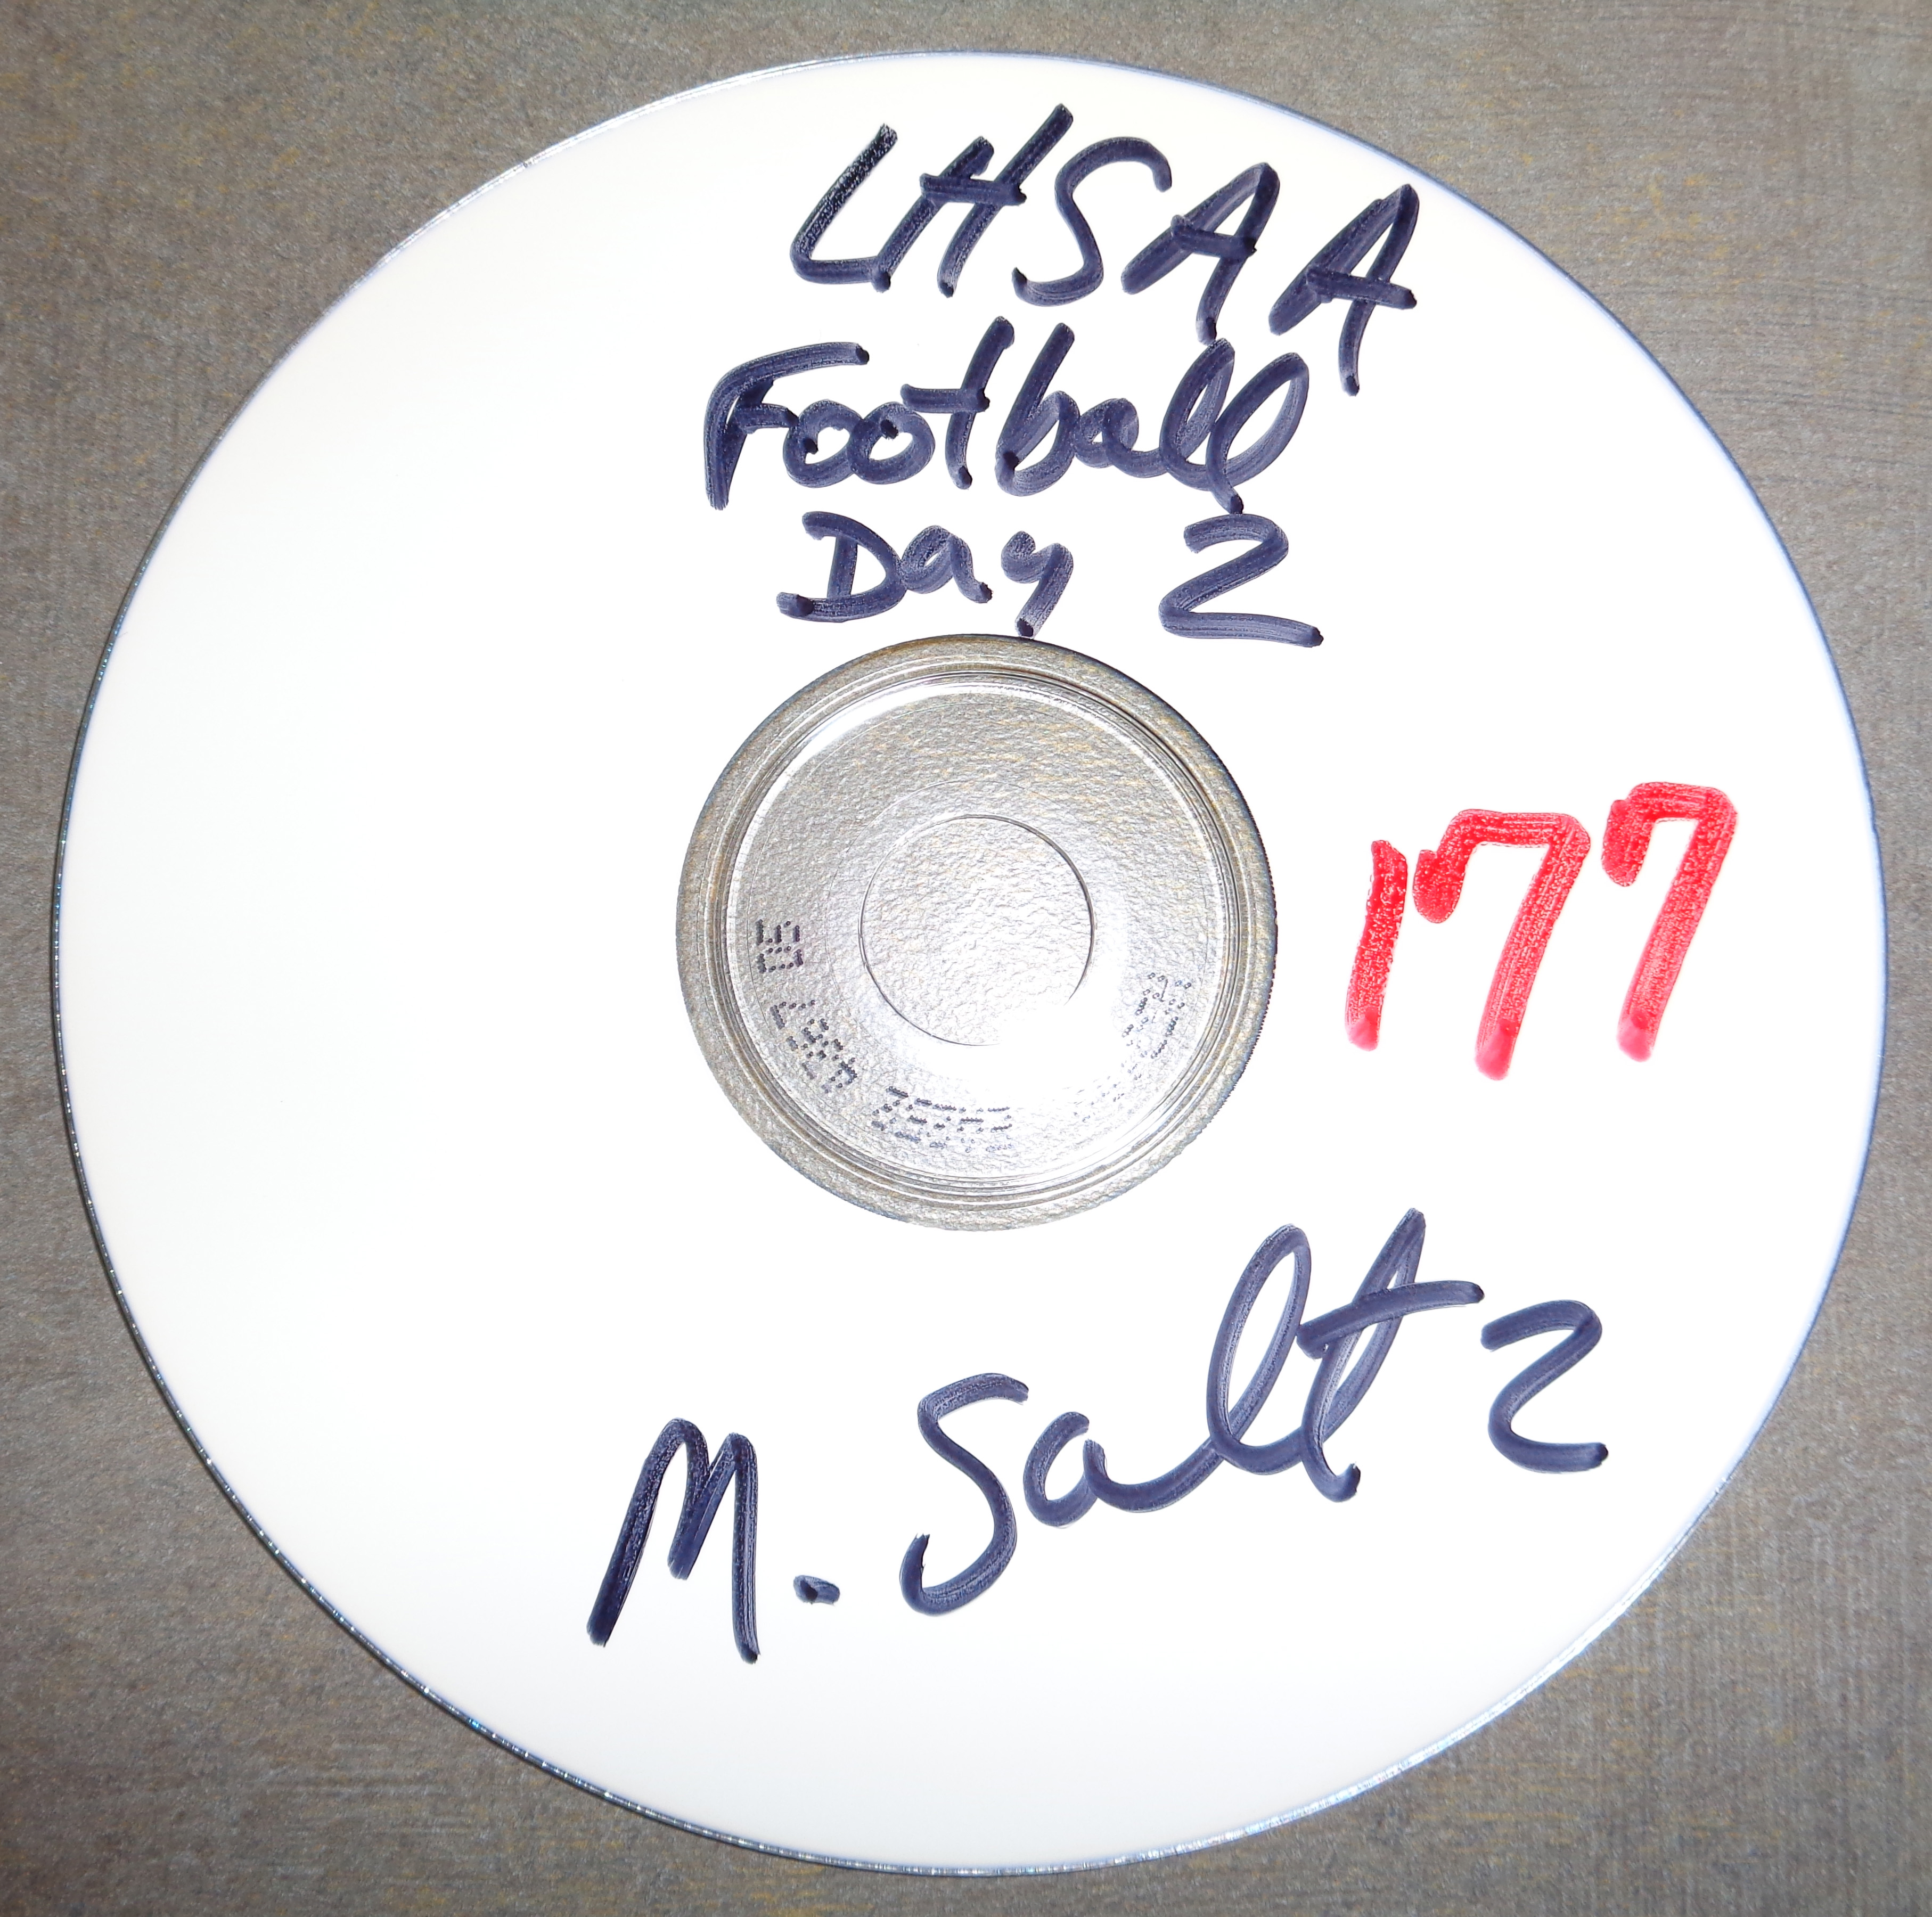 LHSAA
Football
Day 2
177
M. Saltz